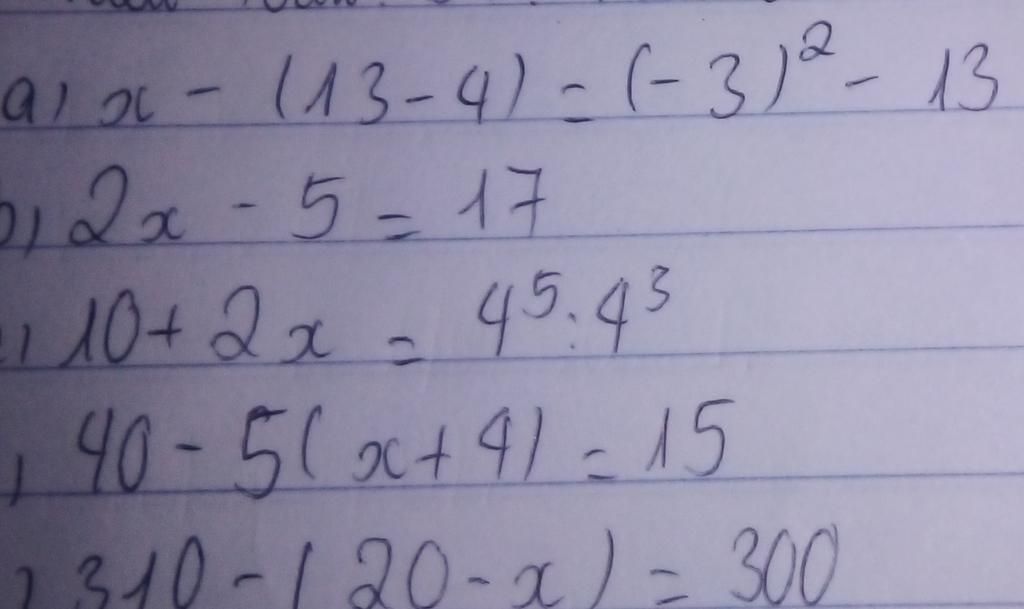 a) x - (13 - 4) = (-3)² - 13
b) 2x - 5 = 17
) 10 + 2x = 4⁵ : 4³
) 40 - 5(x + 4) = 15
) 310 - (20 - x) = 300